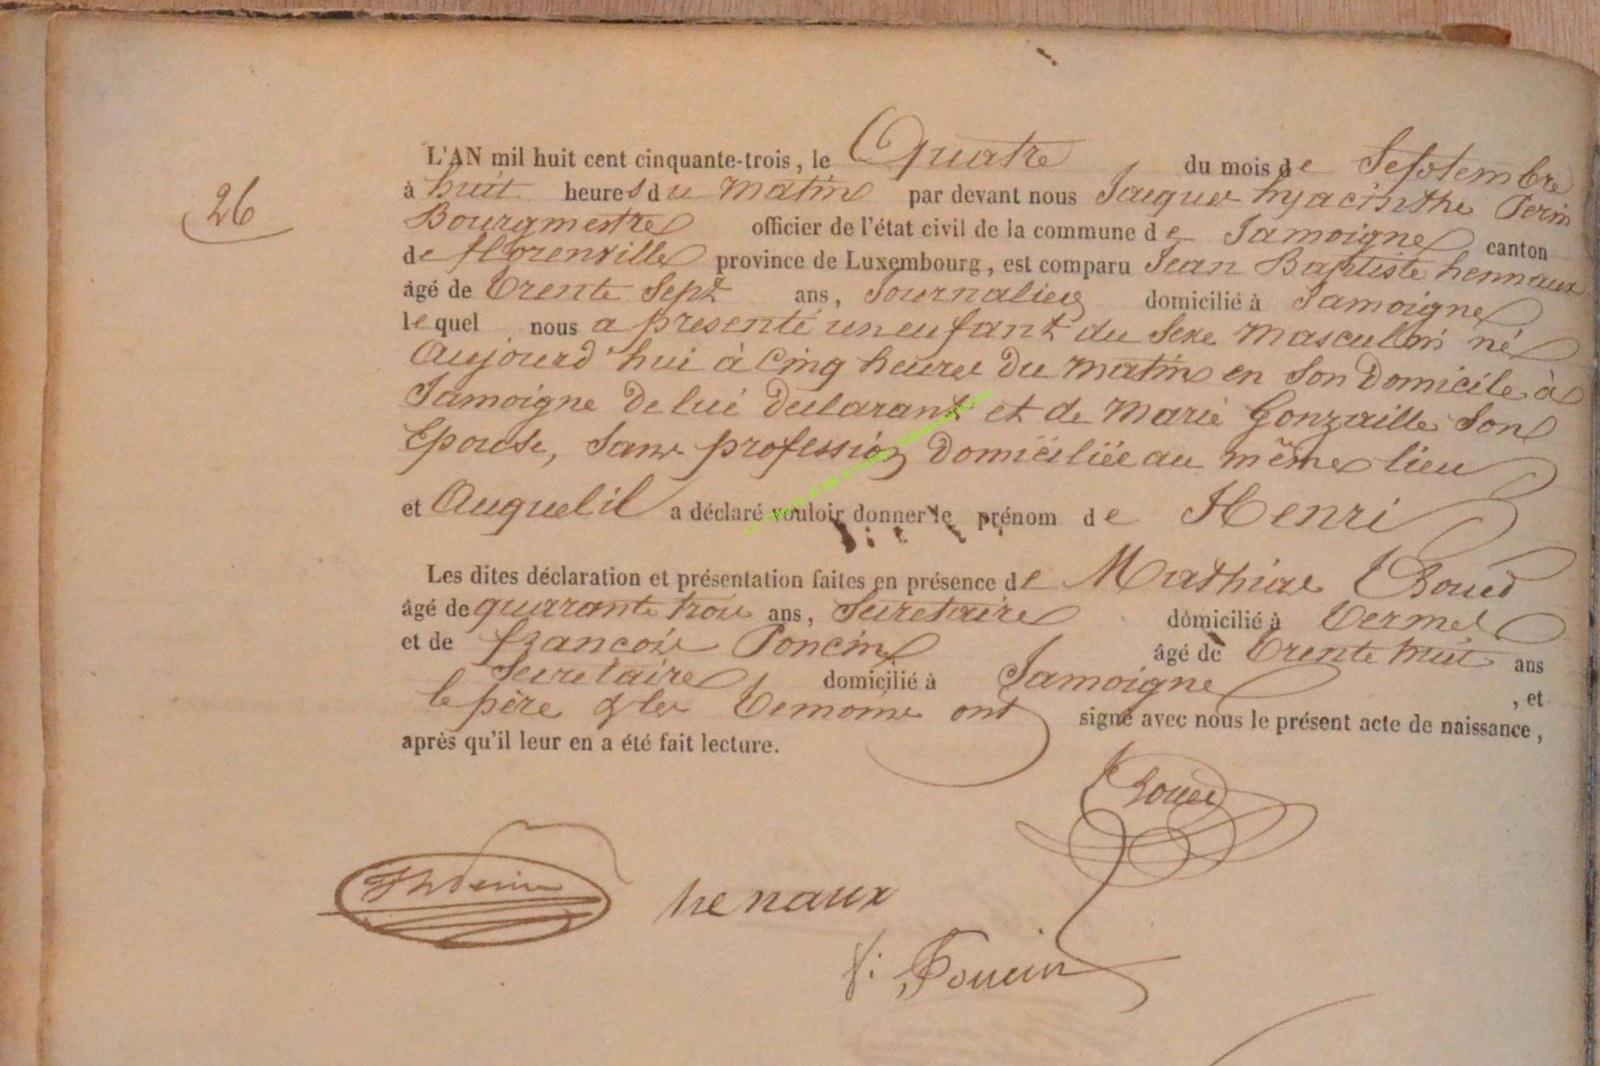 26
L'AN mil huit cent cinquante-trois, le Quatre du mois de Septembre
à huit heures du matin par devant nous Jacques hyacinthe Perin
Bourgmestre officier de l'état civil de la commune de Jamoigne canton
de florenville province de Luxembourg, est comparu Jean Baptiste hennaux
âgé de trente Sept ans, Journalier domicilié à Jamoigne
lequel nous a présenté un enfant du Sexe Masculin né
Aujourd'hui à Cinq heures du matin en Son Domicile à
Jamoigne De lui declarant et de Marie Gonzaille Son
Epouse, Sans profession Domiciliée au même lieu
et Auquel il a déclaré vouloir donner le prénom de Henri
Les dites déclaration et présentation faites en présence de Mathias
âgé de quarante trois ans, Secretaire domicilié à Termes
et de françois Poncin âgé de trente huit ans
Secretaire domicilié à Jamoigne , et
le père & les temoins ont signé avec nous le présent acte de naissance,
après qu'il leur en a été fait lecture.
henaux
f: Poncin